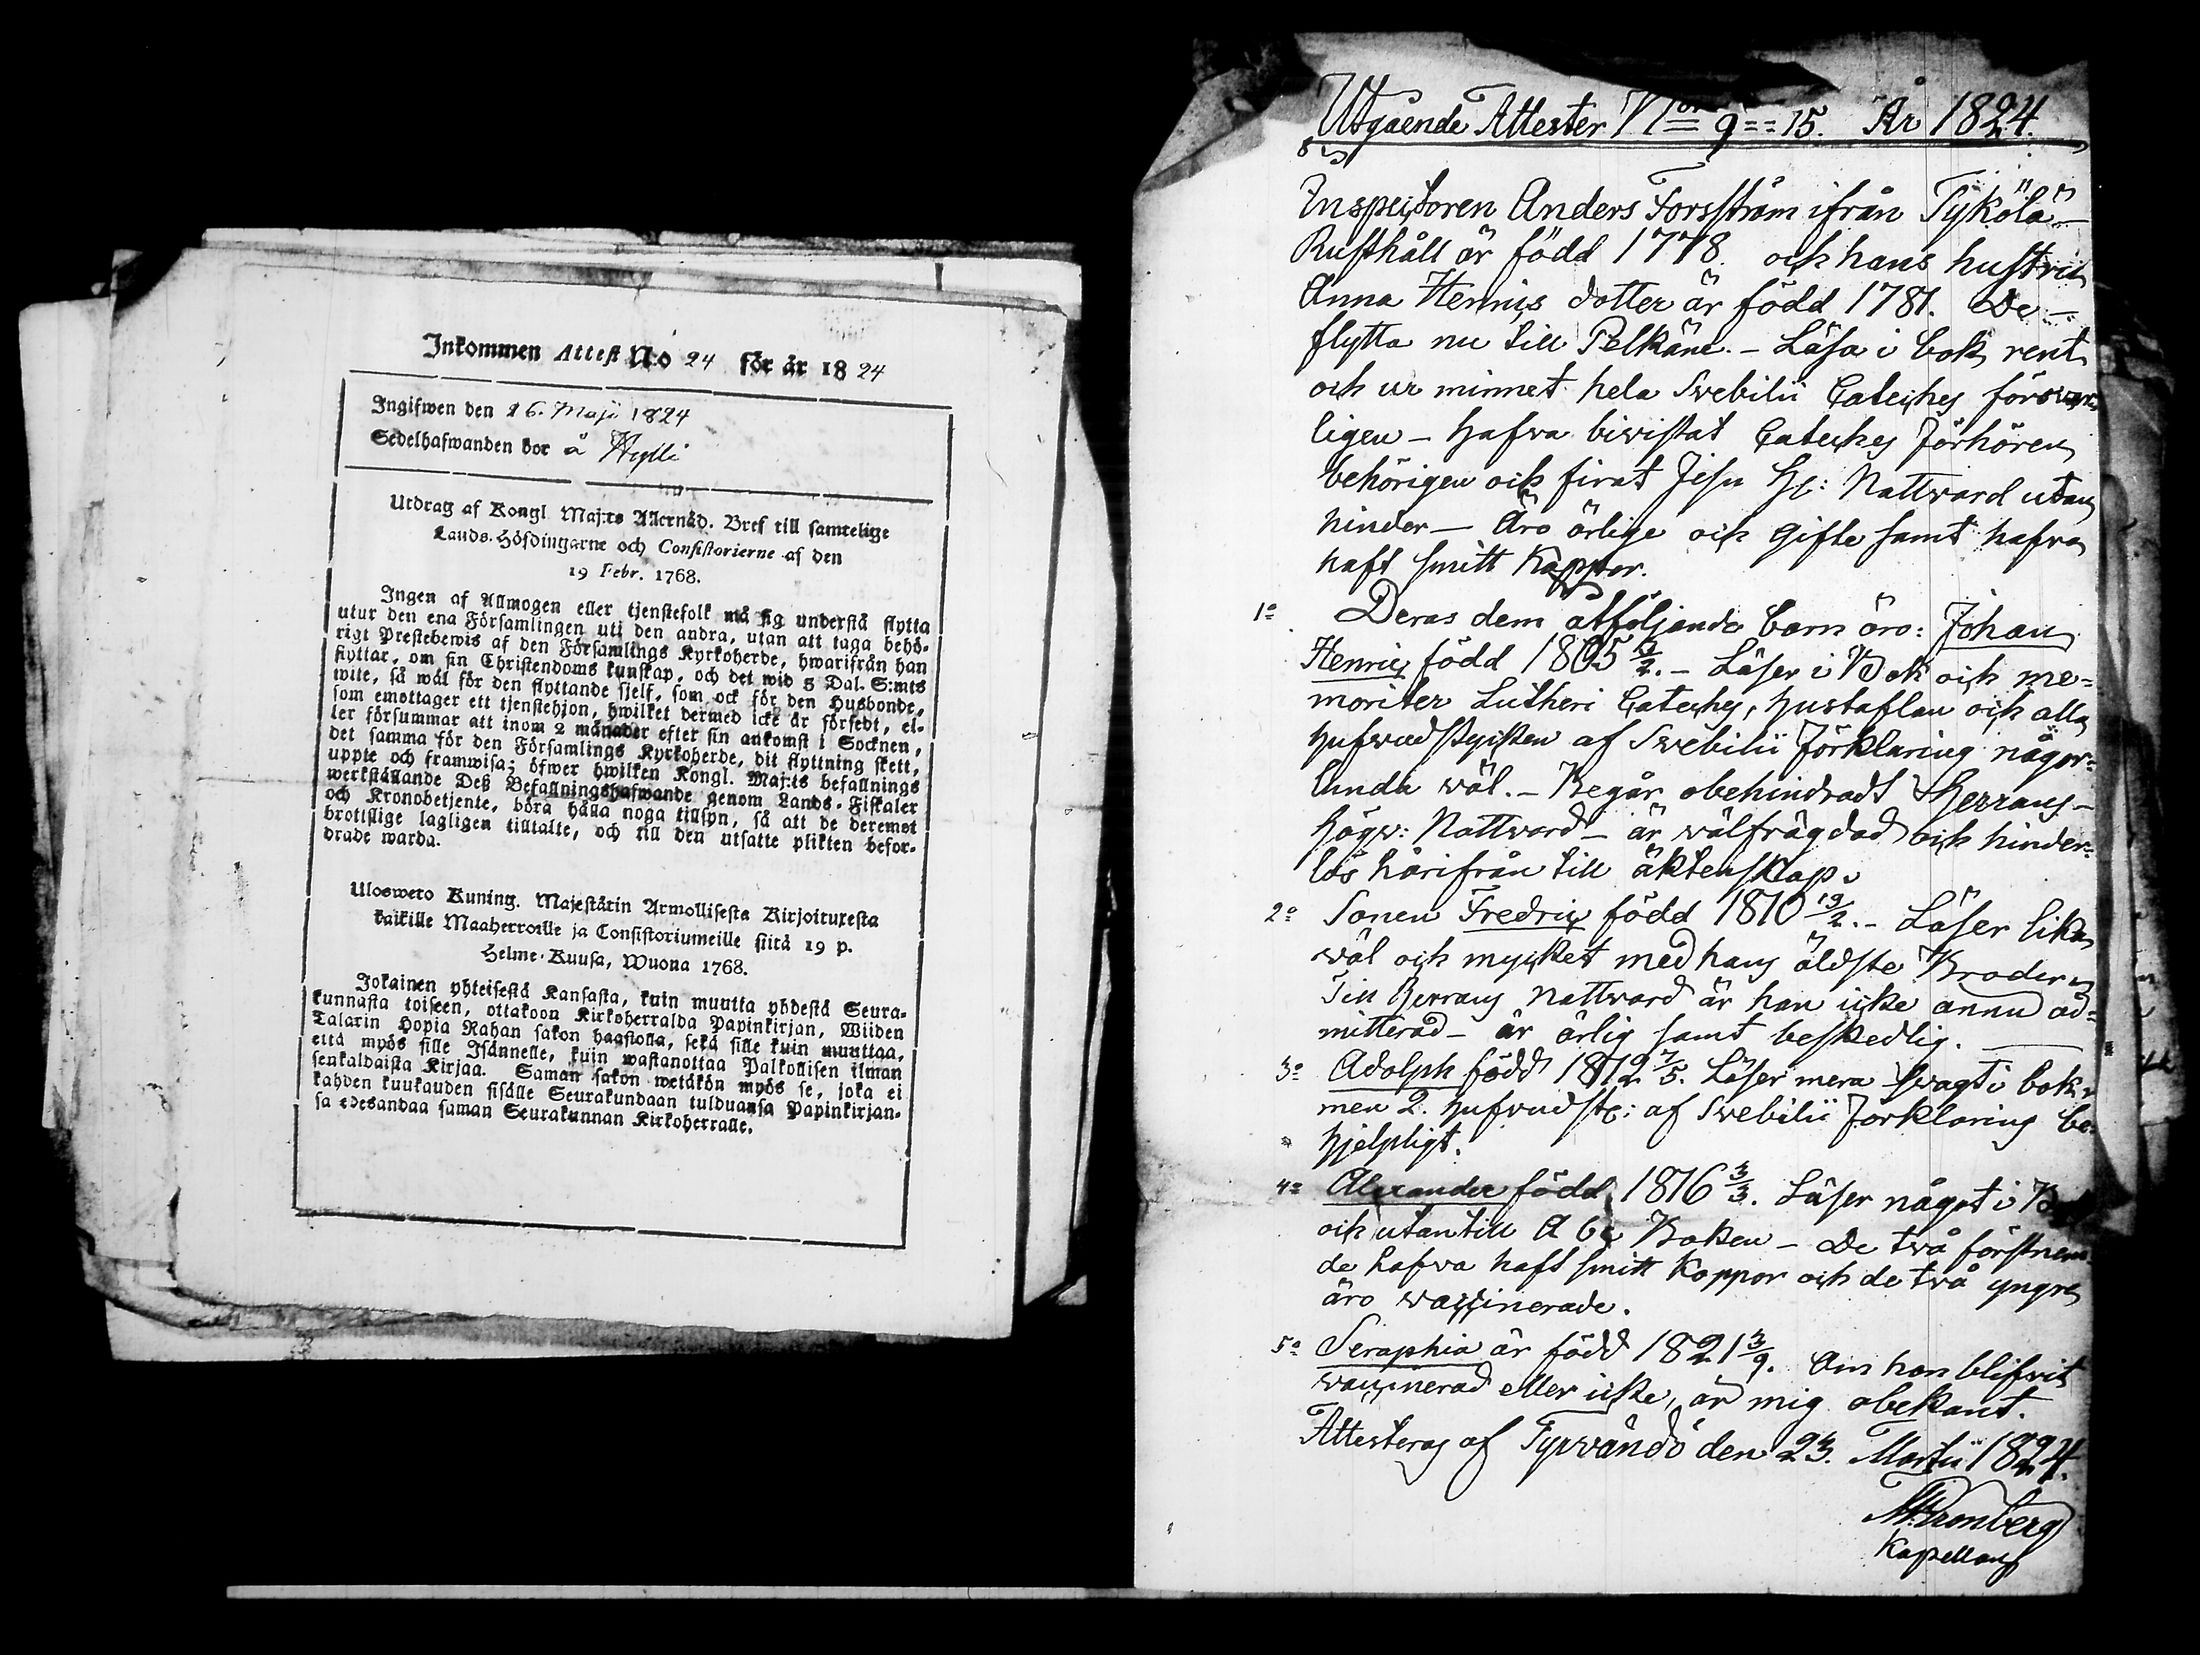 Inkommen Attest N:o 24 för år 1824
Ingifwen den 16. Maji 1824
Sedelhafwanden bor å Hylli
Utdrag af Kongl. Maj:ts Allernåd. Bref till samtelige
Lands-Höfdingarne och Consistorierne af den
19 Febr. 1768.
Ingen af Allmogen eller tjenstefolk må sig understå flytta
utur den ena Församlingen uti den andra, utan att taga behö-
rigt Prestebewis af den Församlings Kyrkoherde, hwarifrån han
flyttar, om sin Christendoms kunskap, och det wid 5 Dal. S:mts
wite, så wäl för den flyttande sjelf, som ock för den Husbonde,
som emottager ett tjenstehjon, hwilket dermed icke är försedt, el-
ler försummar att inom 2 månader efter sin ankomst i Socknen,
det samma för den Församlings Kyrkoherde, dit flyttning skett,
uppte och framwisa; öfwer hwilken Kongl. Maj:ts befallnings
werkställande Deß Befallningshafwande genom Lands-Fiskaler
och Kronobetjente, böra hålla noga tillsyn, så att de deremot
brottslige lagligen tilltalte, och till den utsatte plikten befor-
drade warda.
Ulosweto Kuning. Majestätin Armollisesta Kirjoituxesta
kaikille Maaherroille ja Consistoriumeille siitä 19 p.
Helme-Kuusa, Wuona 1768.
Jokainen yhteisestä Kansasta, kuin muutta yhdestä Seura-
kunnasta toiseen, ottakoon Kirkoherralda Papinkirjan, Wiiden
Talarin Hopia Rahan sakon haastolla, sekä sille kuin muuttaa,
että myös sille Isännelle, kuin wastanottaa Palkollisen ilman
senkaldaista Kirjaa. Saman sakon wetäkön myös se, joka ei
kahden kuukauden sisälle Seurakundaan tulduansa Papinkirjan-
sa edesandaa saman Seurakunnan Kirkoherralle.
Utgående Attester N:or 9 == 15. År 1824.
Inspectoren Anders Forsström ifrån Tykölä
Rusthåll är född 1778 och hans hustru
Anna Henrics dotter är född 1781. De
flytta nu till Pelkäne. - Läsa i bok rent
och ur minnet hela Swebilii Cateches förswar
ligen - Hafva biwistat Cateches Förhören
behörigen och firat Jesu H: Nattward utan
hinder - Äro ärlige och Gifte samt hafva
haft smitt Koppor.
1o Deras dem åtföljande barn äro: Johan
Henric född 1805 13/2. - Läser i Bok och me=
moriter Lutheri Cateches, Hustaflan och alla
Hufwudstycken af Swebilii Förklaring någor=
lunda wäl. - Begår obehindradt Herrans
Högw: Nattward - är wälfrägdad och hinder=
lös härifrån till äktenskap.
2o Sonen Fredric född 1810 19/2. - Läser lika
wäl och mycket med hans äldste Broder
Till Herrans Nattward är han icke ännu ad=
mitterad - är ärlig samt beskedlig.
3o Adolph född 1812 7/5. Läser mera swagt i bok
men 2. Hufwudst: af Swebilii Förklaring be=
hjelpligt.
4o Alexander född 1816 3/3. Läser något i Bok
och utantill A bc Boken - De två förstnem
de hafva haft smitt Koppor och de två yngre
äro waccinerade.
5o Seraphia är född 1821 3/9. Om hon blifvit
waccinerad eller icke, är mig obekant.
Attesteras af Tyrvändö den 23. Martii 1824.
Kapellan